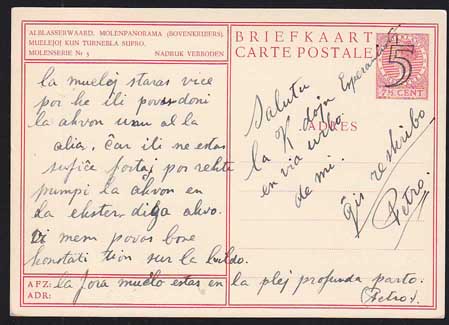 ALBLASSERWAARD. MOLENPANORAMA (BOVENKRUIERS).
MUELEJOJ KUN TURNEBLA SUPRO.
MOLENSERIE Nr 5 NADRUK VERBODEN
la mueloj staras vice
por ke ili povu doni
la akvon unu al la
alia, ĉar ili ne estas
sufiĉe fortaj por rekte
pumpi la akvon en
la ekster diga akvo.
Vi mem povas bone
konstati tion sur la bildo.
AFZ: la fora muelo estas en la plej profunda parto.
ADR: (Petro).
BRIEFKAART
CARTE POSTALE
5
7½ CENT
ADRES
Salutu
la K-dojn Esperantistojn
en via urbo
de mi.
ĝis reskribo
Petro.